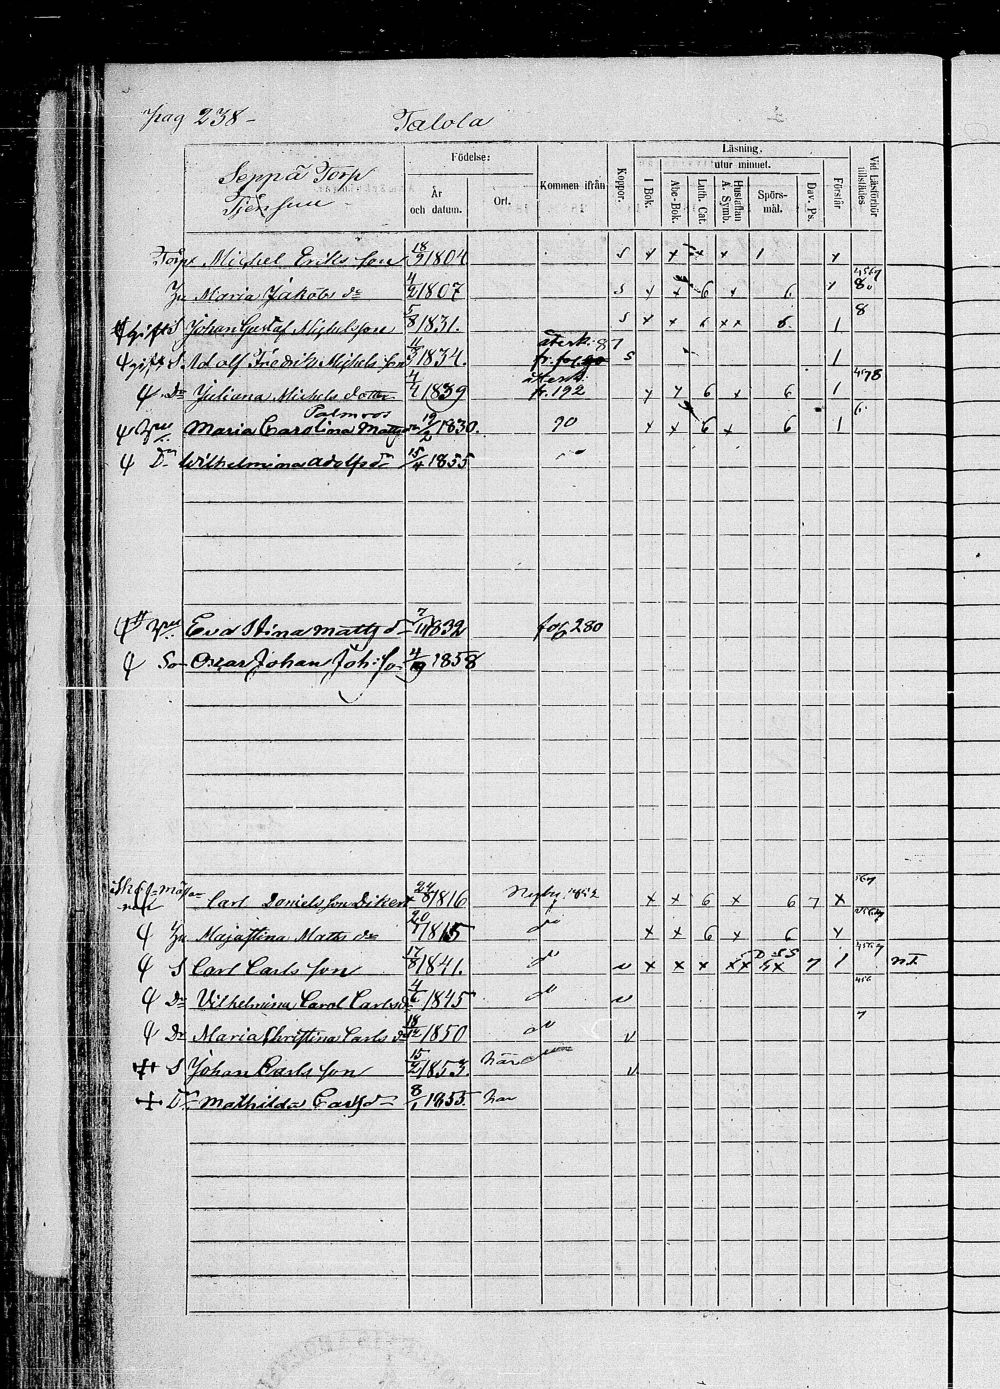 pag 238 -
Talola
Seppä Torp
Födelse:
År och datum.
Ort.
Kommen ifrån
Koppor.
Läsning.
utur minnet.
I Bok.
Abc-Bok.
Luth. Cat.
Hustaflan A. Symb.
Spörs-mål.
Dav. Ps.
Förstår
Vid Läsförhör tillstädes
Torp Michel Eriks son 18/2 1804 S x x x x 1 x
Hu Maria Jakobs dr 4/2 1807 S x x 6 x 6 x 8
gift S Johan Gustaf Michelsson 5/8 1831. S x x 6 x x 6 1 8
gift S. Adolf Fredrik Michels son 4/3 1834. återk: 87 S 1
Dr Juliana Michels dotter 4/4 1839 återk: fr. 192 x 7 6 x 6 1 4578
Palmroos
Maria Carolina Matts 19/2 1830. 90 x x 6 x 6 1 6
Dr Wilhelmina Adolfsdr 15/4 1855
Eva Stina Matts d 7/11 1832 fol 280
So Oscar Johan Joh: so 4/9 1858
Carl Daniels son Dikert 24/8 1816 Nyby 1852 x x 6 x 6 7 x 567
Hu Majastina Matts dr 20/1 1815 do x x 6 x 6 x
S Carl Carls son 17/8 1841. do x x x x x 7 1
Dr Vilhelmina Carol Carlsdr 4/6 1845 do 456
Dr Maria Christina Carls dr 18/12 1850 do 7
S Johan Carls son 15/2 1853. här
Dr Mathilda Carlsdr 8/1 1855. här